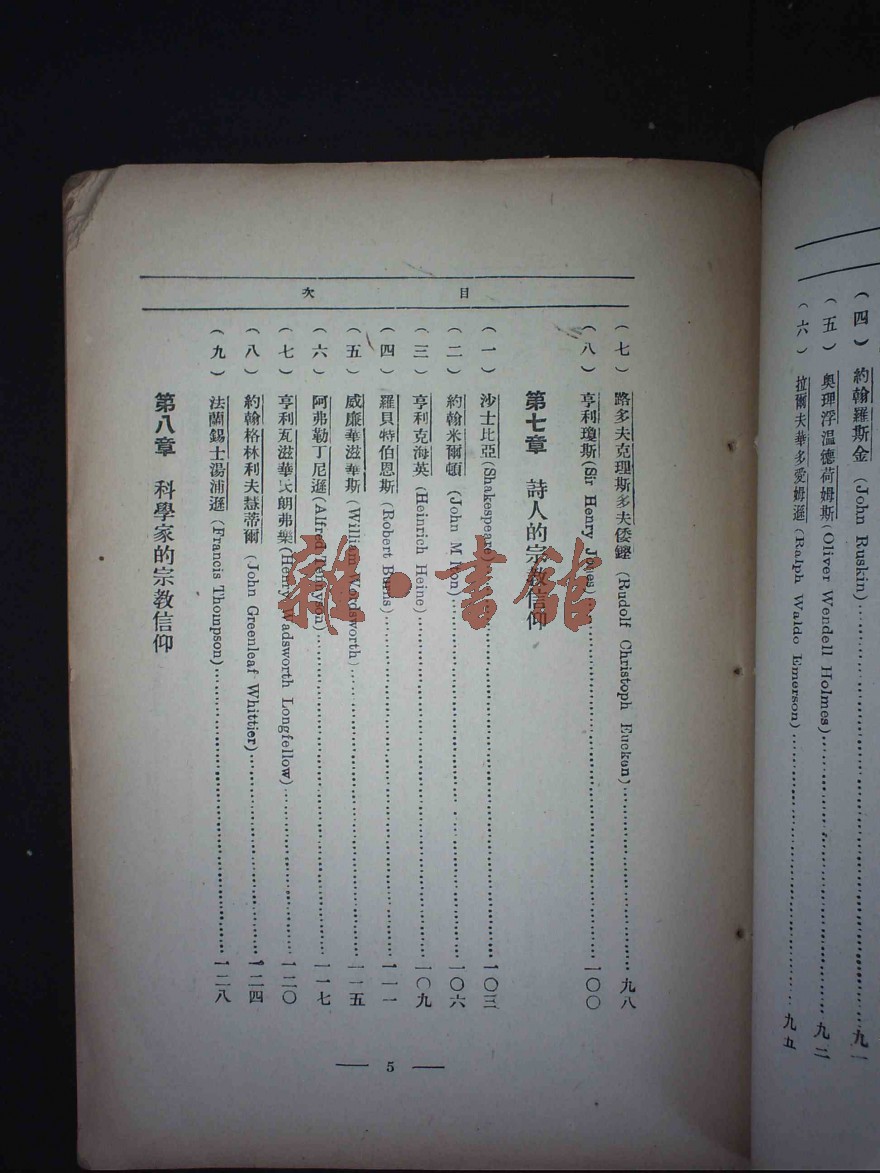 （四）約翰羅斯金 (John Ruskin)……九一
（五）奧理浮溫德荷姆斯 (Oliver Wendell Holmes)……九二
（六）拉爾夫華多愛姆遜 (Ralph Waldo Emerson)……九五
目次
（七）路多夫克理斯多夫倭鏗 (Rudolf Christoph Eucken)……九八
（八）亨利瓊斯 (Sir Henry Jones)……一〇〇
第七章 詩人的宗教信仰
（一）沙士比亞 (Shakespeare)……一〇三
（二）約翰米爾頓 (John Milton)……一〇六
（三）亨利克海英 (Heinrich Heine)……一〇九
（四）羅貝特伯恩斯 (Robert Burns)……一一一
（五）威廉華滋華斯 (William Wordsworth)……一一五
（六）阿弗勒丁尼遜 (Alfred Tennyson)……一一七
（七）亨利瓦滋華氏朗弗樂 (Henry Wadsworth Longfellow)……一二〇
（八）約翰格林利夫慧蒂爾 (John Greenleaf Whittier)……一二四
（九）法蘭錫士湯浦遜 (Francis Thompson)……一二八
第八章 科學家的宗教信仰
— 5 —
雜·書館